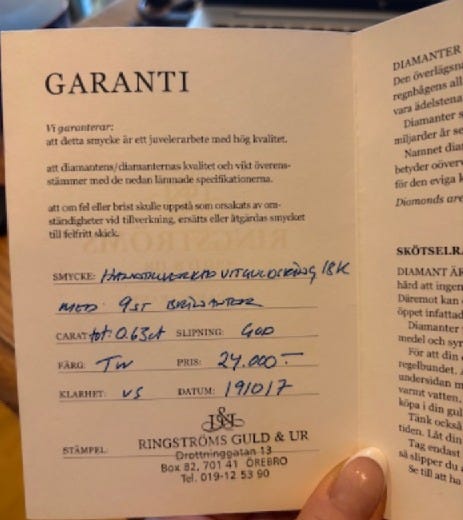 GARANTI
Vi garanterar:
att detta smycke är ett juvelerarbete med hög kvalitet.
att diamantens/diamanternas kvalitet och vikt överens-
stämmer med de nedan lämnade specifikationerna.
att om fel eller brist skulle uppstå som orsakats av om-
ständigheter vid tillverkning, ersätts eller åtgärdas smycket
till felfritt skick.
SMYCKE: HANDTILLVERKAD VITGULDSRING 18K
MED 9ST BRILJANTER
CARAT tot: 0.63ct SLIPNING: GOD
FÄRG: TW PRIS: 24.000:-
KLARHET: VS DATUM: 191017
STÄMPEL:
RINGSTRÖMS GULD & UR
Drottninggatan 13
Box 82, 701 41 ÖREBRO
Tel. 019-12 53 90
DIAMANTER
Den överlägsna
regnbågens all
vara ädelstena
Diamanter s
miljarder år se
Namnet dia
betyder oöverv
för den eviga k
Diamonds are
SKÖTSELRÅ
DIAMANT ÄR
hård att ingen
Däremot kan
öppet infattad
Diamanter
medel och syr
För att din
regelbundet.
undersidan m
varmt vatten.
köpa i din gul
Tänk också
tiden. Låt din
Tag endast
så slipper du
Se till att ha